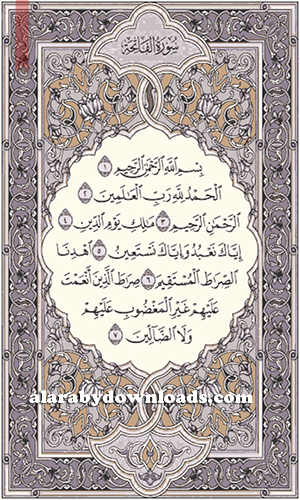 سورة الفاتحة
بسم الله الرحمن الرحيم ١
الحمد لله رب العالمين ٢
الرحمن الرحيم ٣ مالك يوم الدين ٤
إياك نعبد وإياك نستعين ٥ اهدنا
الصراط المستقيم ٦ صراط الذين أنعمت
عليهم غير المغضوب عليهم
ولا الضالين ٧
alarabydownloads.com